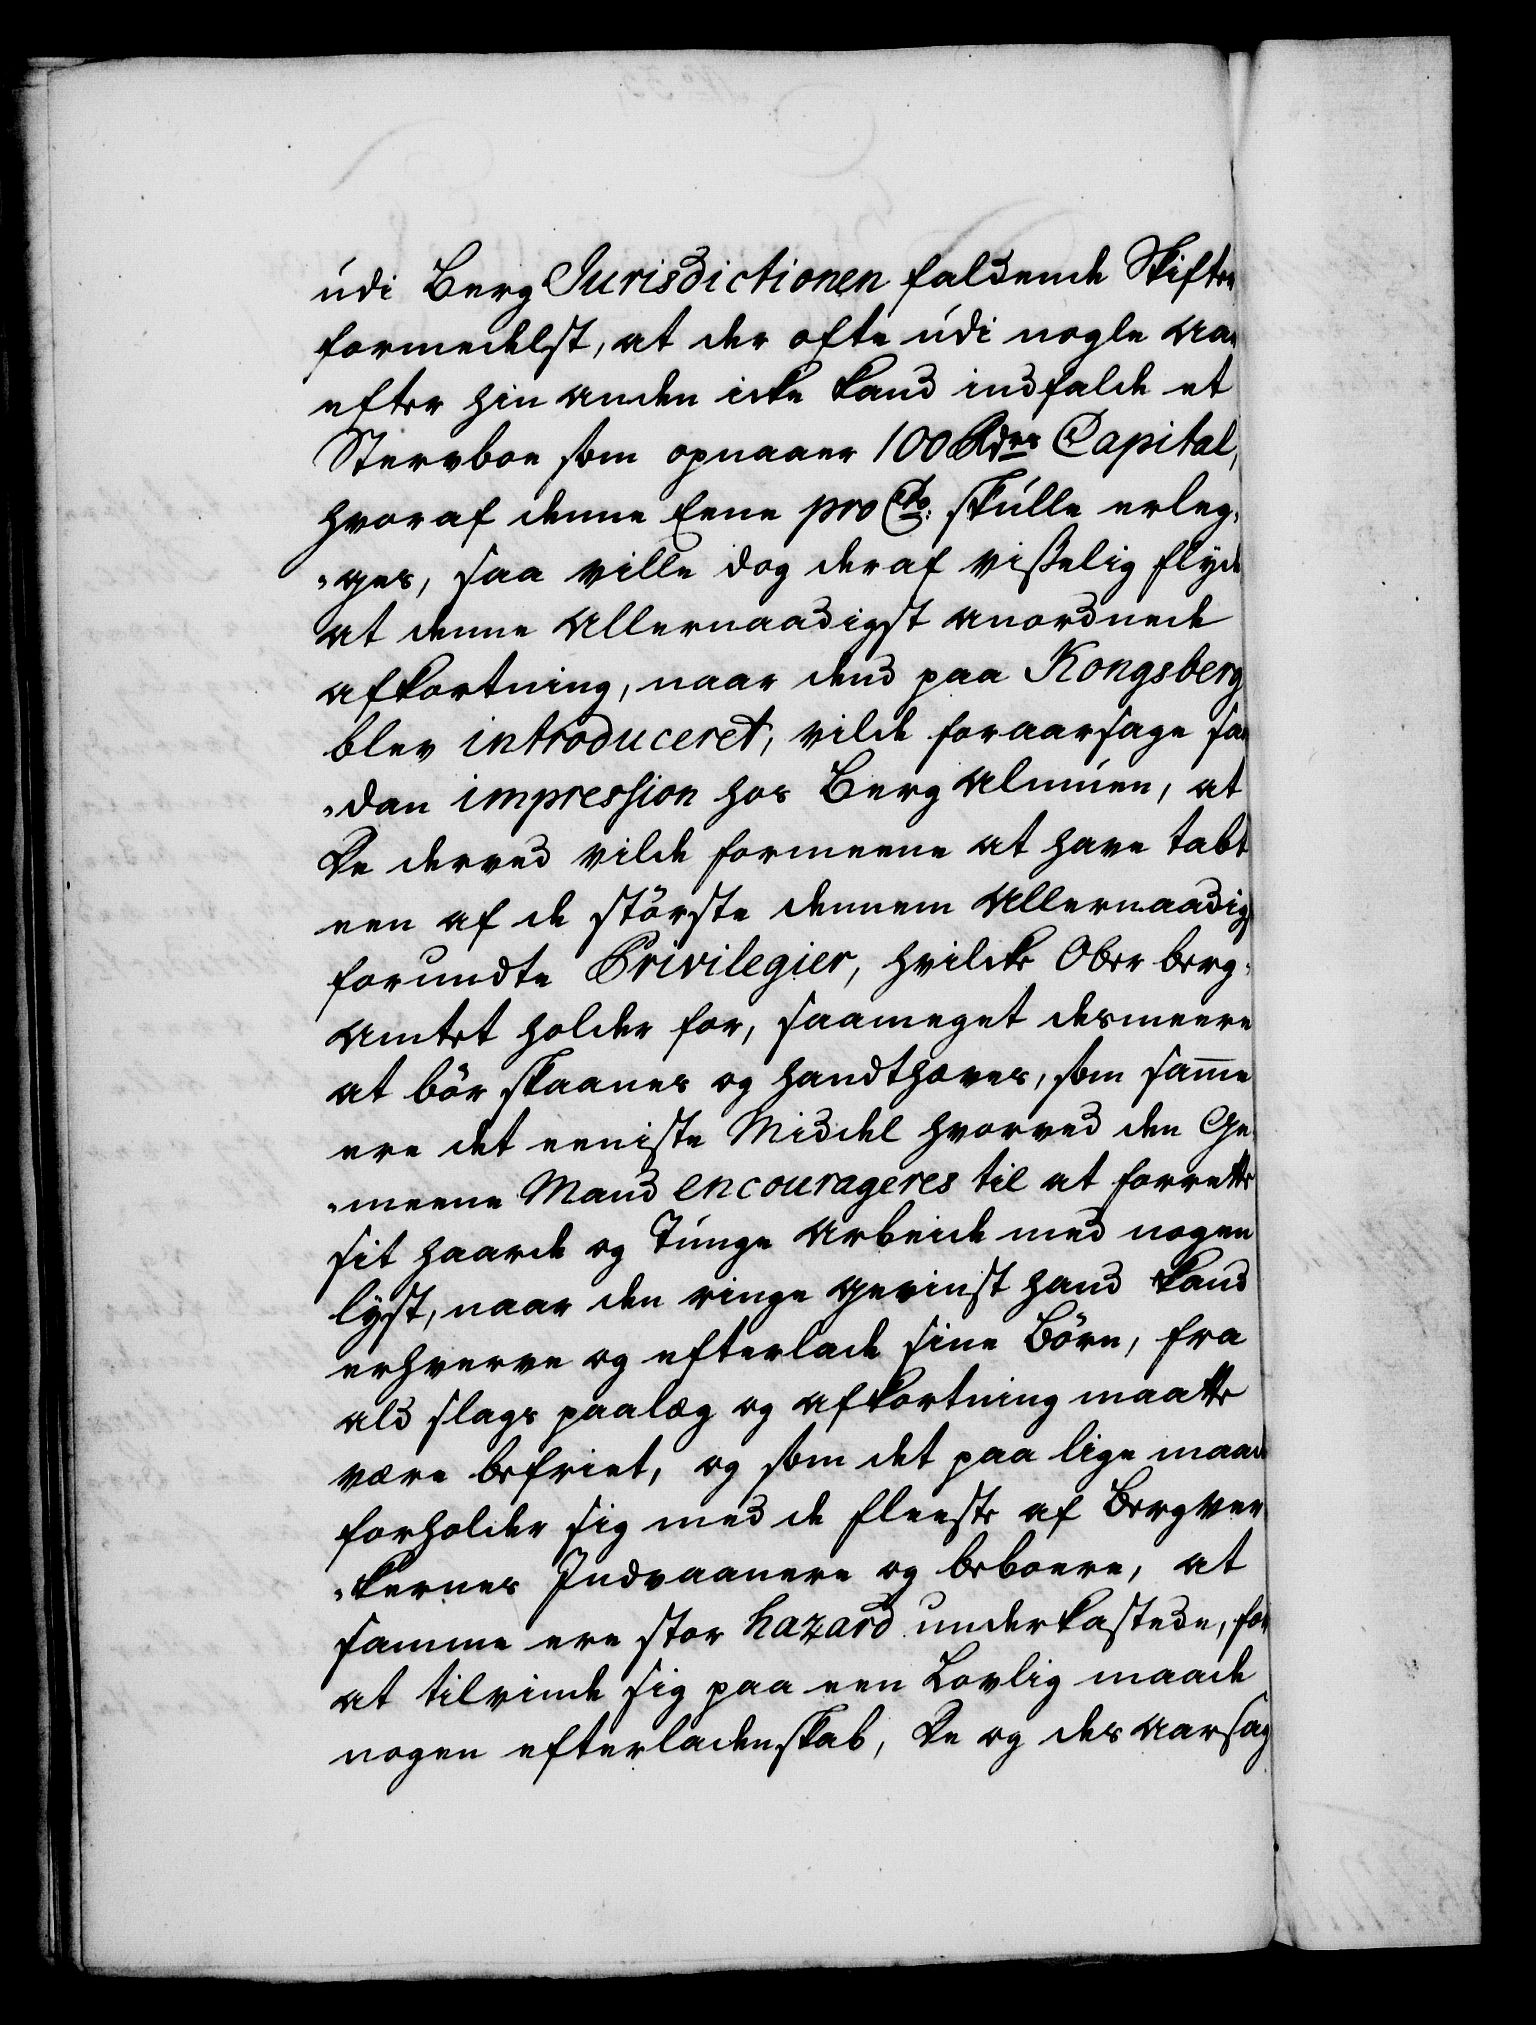 udi Berg Jurisdictionen faldende Skifter
formedelst, at der ofte udi nogle Aar
efter hin anden icke kand indfalde et
Stervboe som opnaaer 100 Rdrs Capital,
hvoraf denne Eene pro Cto: skulle erleg-
-ges, saa ville dog deraf visselig flyde
at denne Allernaadigst anordnede
afkortning, naar dend paa Kongsberg
blev introduceret, vilde foraarsage saa
-dan impression hos Berg Almuen, at
De derved vilde formeene at have tabt
een af de störste dennem Allernaadigst
forundte Privilegier, hvilcke Ober berg-
Amtet holder for, saameget desmeere
at bör skaanes og handthæves, som samme
ere det eeniste Middel hvorved den Ge-
-meene Mand encourageres til at forrette
sit haarde og Tunge Arbeide med nogen
lyst, naar den ringe gevinst hand kand
erhverve og efterlade sine Börn, fra
ald slags paalæg og afkortning maatte
være befriet, og som det paa lige maade
forholder sig med de fleeste af Bergver
-kernes Indvaanere og beboere, at
samme ere stor hazard underkastede, for
at tilvinde sig paa een Lovlig maade
nogen efterladenskab, De og des aarsag